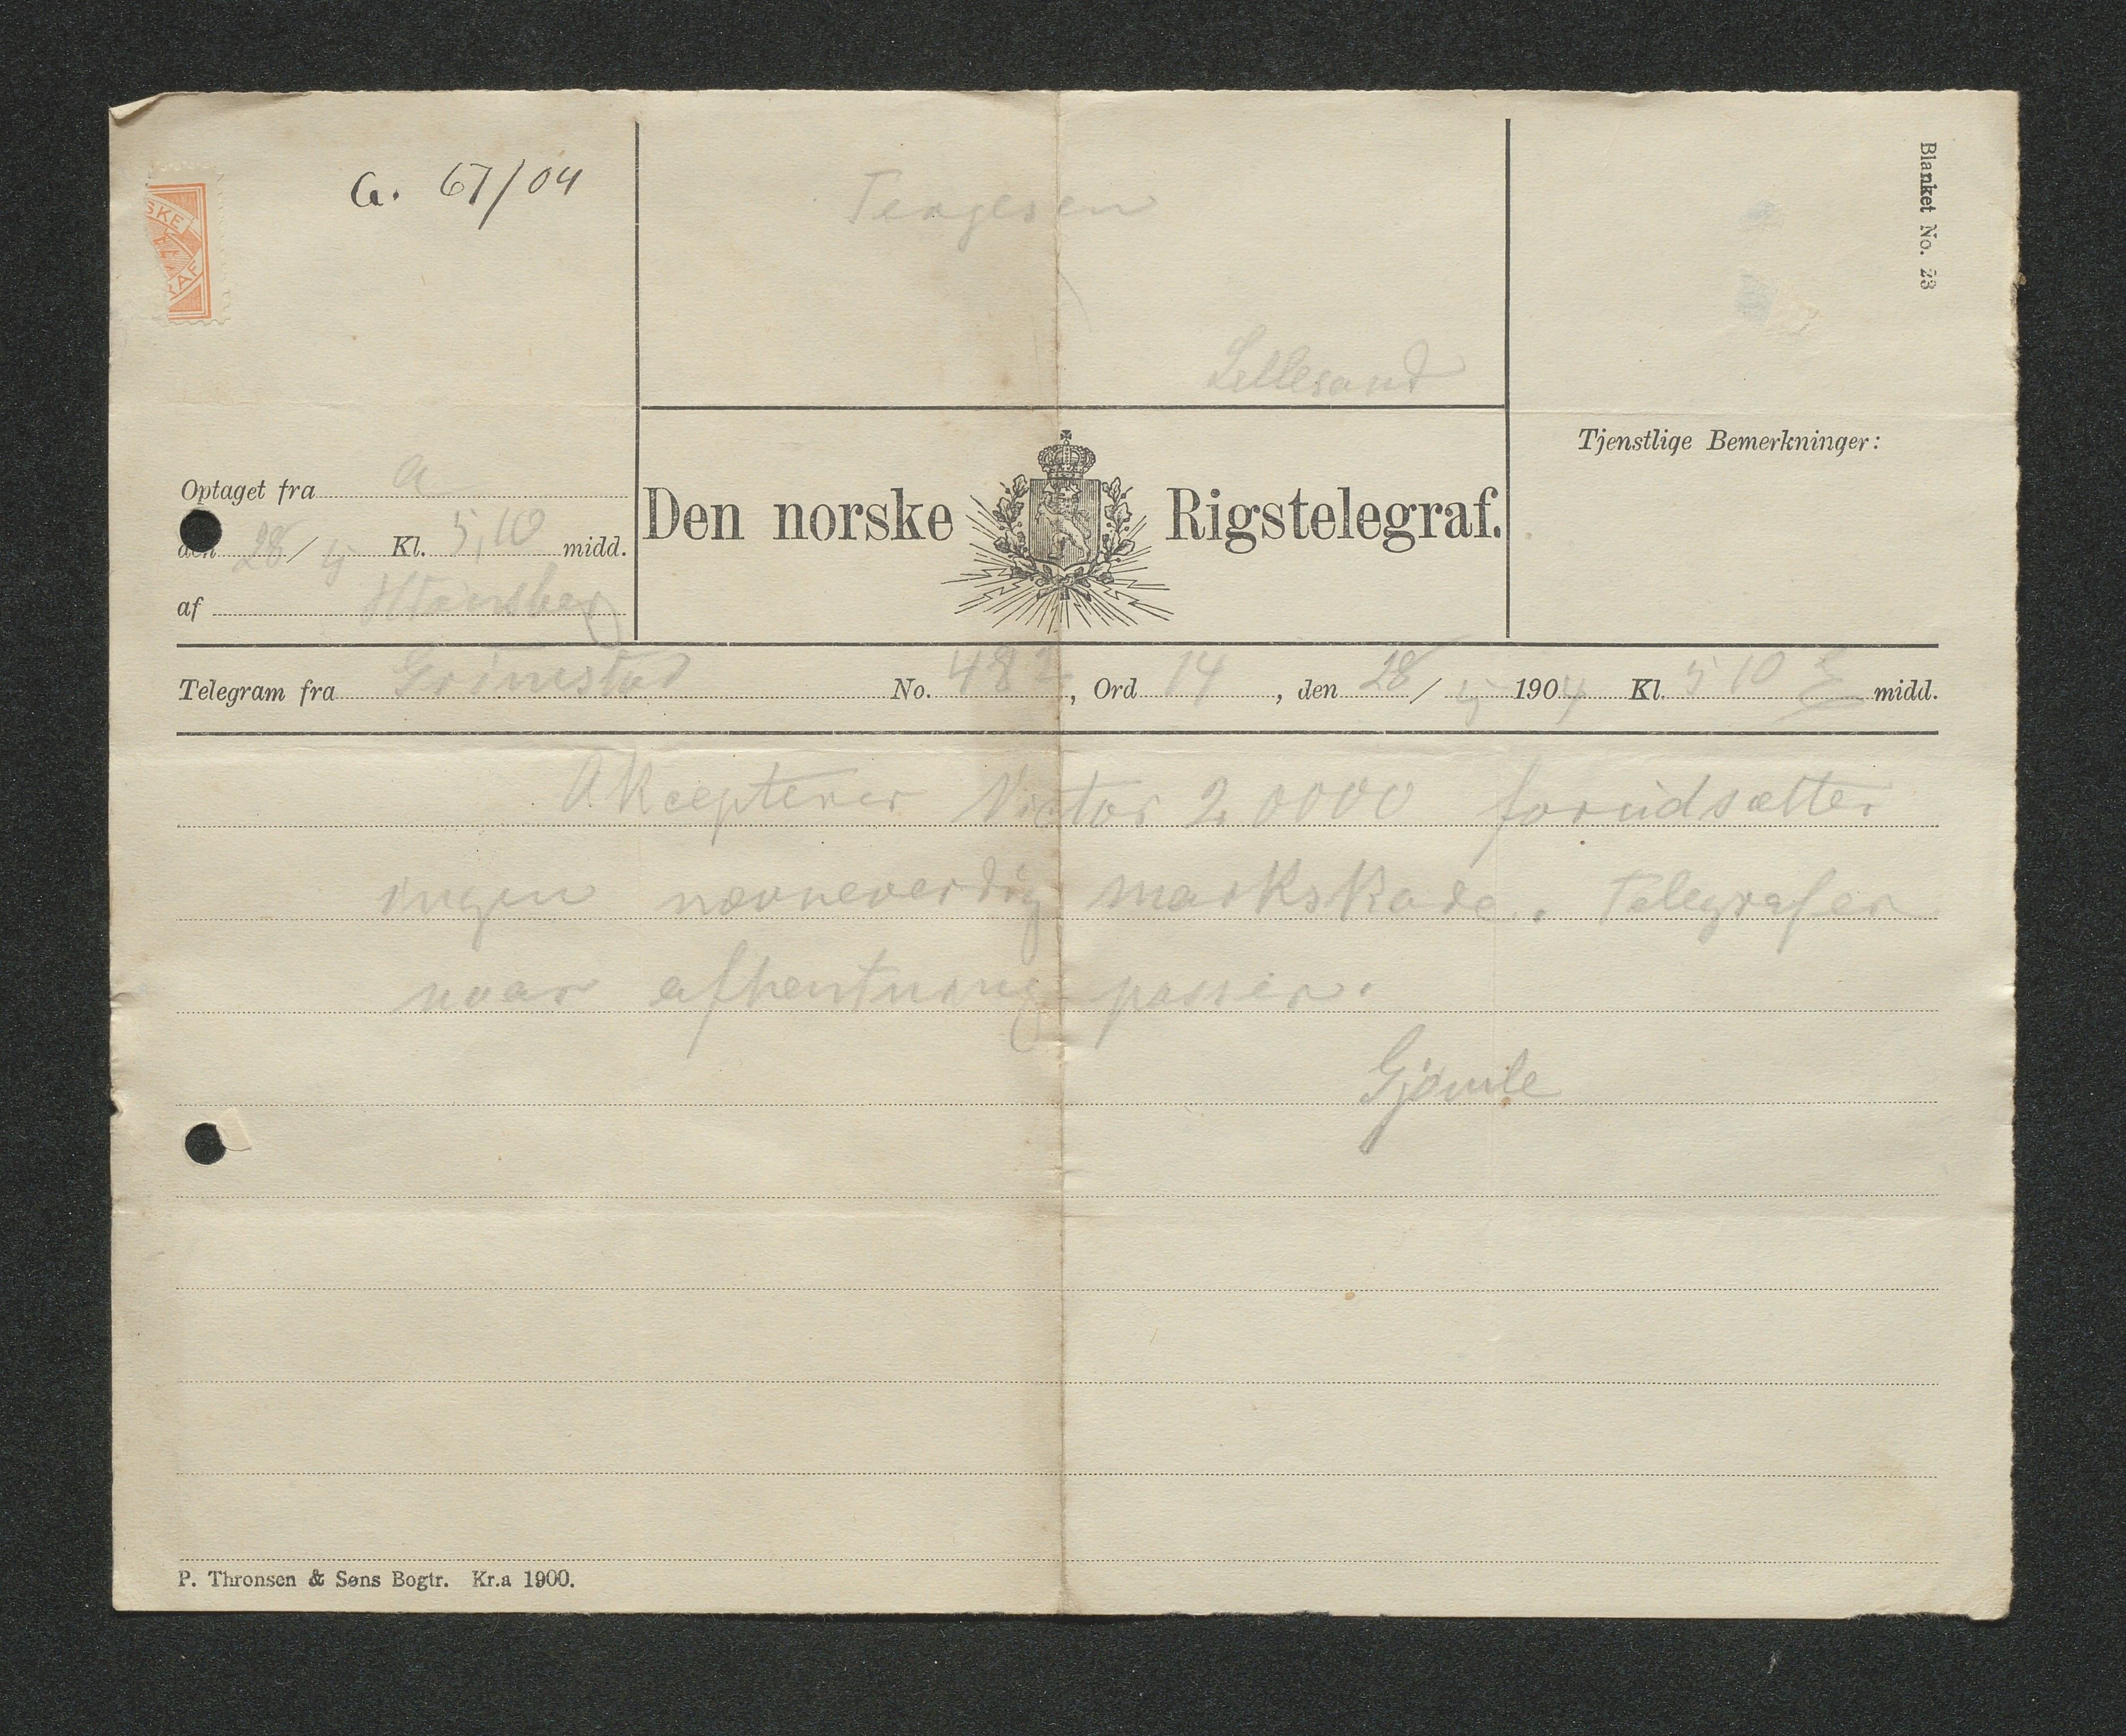 SKE
RAF
G. 67/04
Blanket No. 23
Tergesen
Lillesand
Tjenstlige Bemerkninger:
Optaget fra a
den 28/5 Kl. 5,10 midd.
af
Den norske Rigstelegraf.
Telegram fra Grimstad No. 482, Ord 14, den 28/5 1904 Kl. 5 10 E midd.
Akcepterer Victor 20000 forudsætter
ingen nævneverdig markskade. Telegrafer
naar afhentning passer.
Gjömle
P. Thronsen & Søns Bogtr. Kr.a 1900.